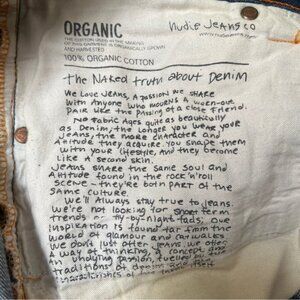 ORGANIC
THE COTTON USED IN THE MAKING
OF THIS GARMENT IS ORGANICALLY GROWN
AND HARVESTED
100% ORGANIC COTTON
Nudie Jeans co
www.nudiejeans.com
The Naked truth about Denim
We love Jeans, a passion we share
with Anyone who mourns a worn-out
pair like the passing of a close friend.
No fabric Ages quite as beautifully
as Denim, the longer you wear your
jeans, the more character and
Attitude they acquire. You shape them
with your lifestyle, and they become
like a second skin.
Jeans share the same soul and
Attitude found in the rock'n'roll
scene - they're both part of the
same culture.
We'll Always stay true to jeans.
We're not looking for short term
trends or fly-by-night fads. Our
inspiration is found far from the
world of glamour and catwalks
We don't just offer jeans, we offer
A way of thinking, A concept and
An undying passion, fuelled by the
traditions of denim and the
characteristics of the